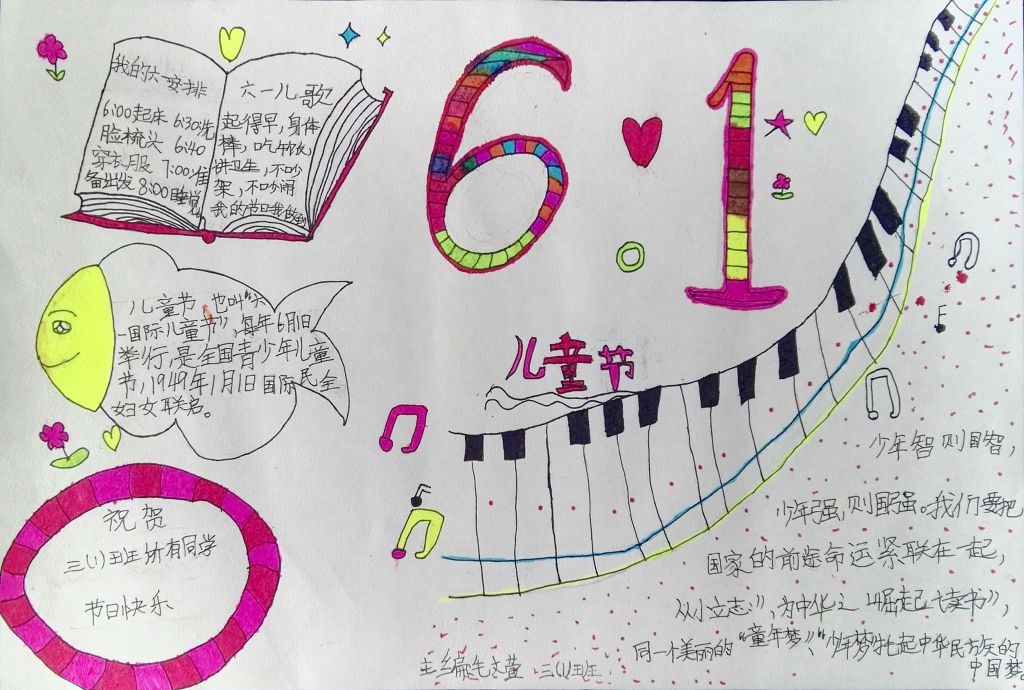 我的六一安排
6:00起床 6:30洗
脸梳头 6:40
穿衣服 7:00准
备出发 8:00睡觉
六一儿歌
起得早,身体
棒,吃午饭
讲卫生,不吵
架,不吵闹
我的节日我做
6 1
儿童节
儿童节,也叫“六
一国际儿童节”,每年6月1日
举行,是全国青少年儿童
节,1949年1月1日国际民全
妇女联名。
祝贺
三(1)班所有同学
节日快乐
少年智则国智,
少年强,则国强。我们要把
国家的前途命运紧联在一起,
从小立志”,为中华之崛起读书”,
同一个美丽的“童年梦”、“少年梦”起中华民族的
中国梦。
主编毛文萱 三(1)班